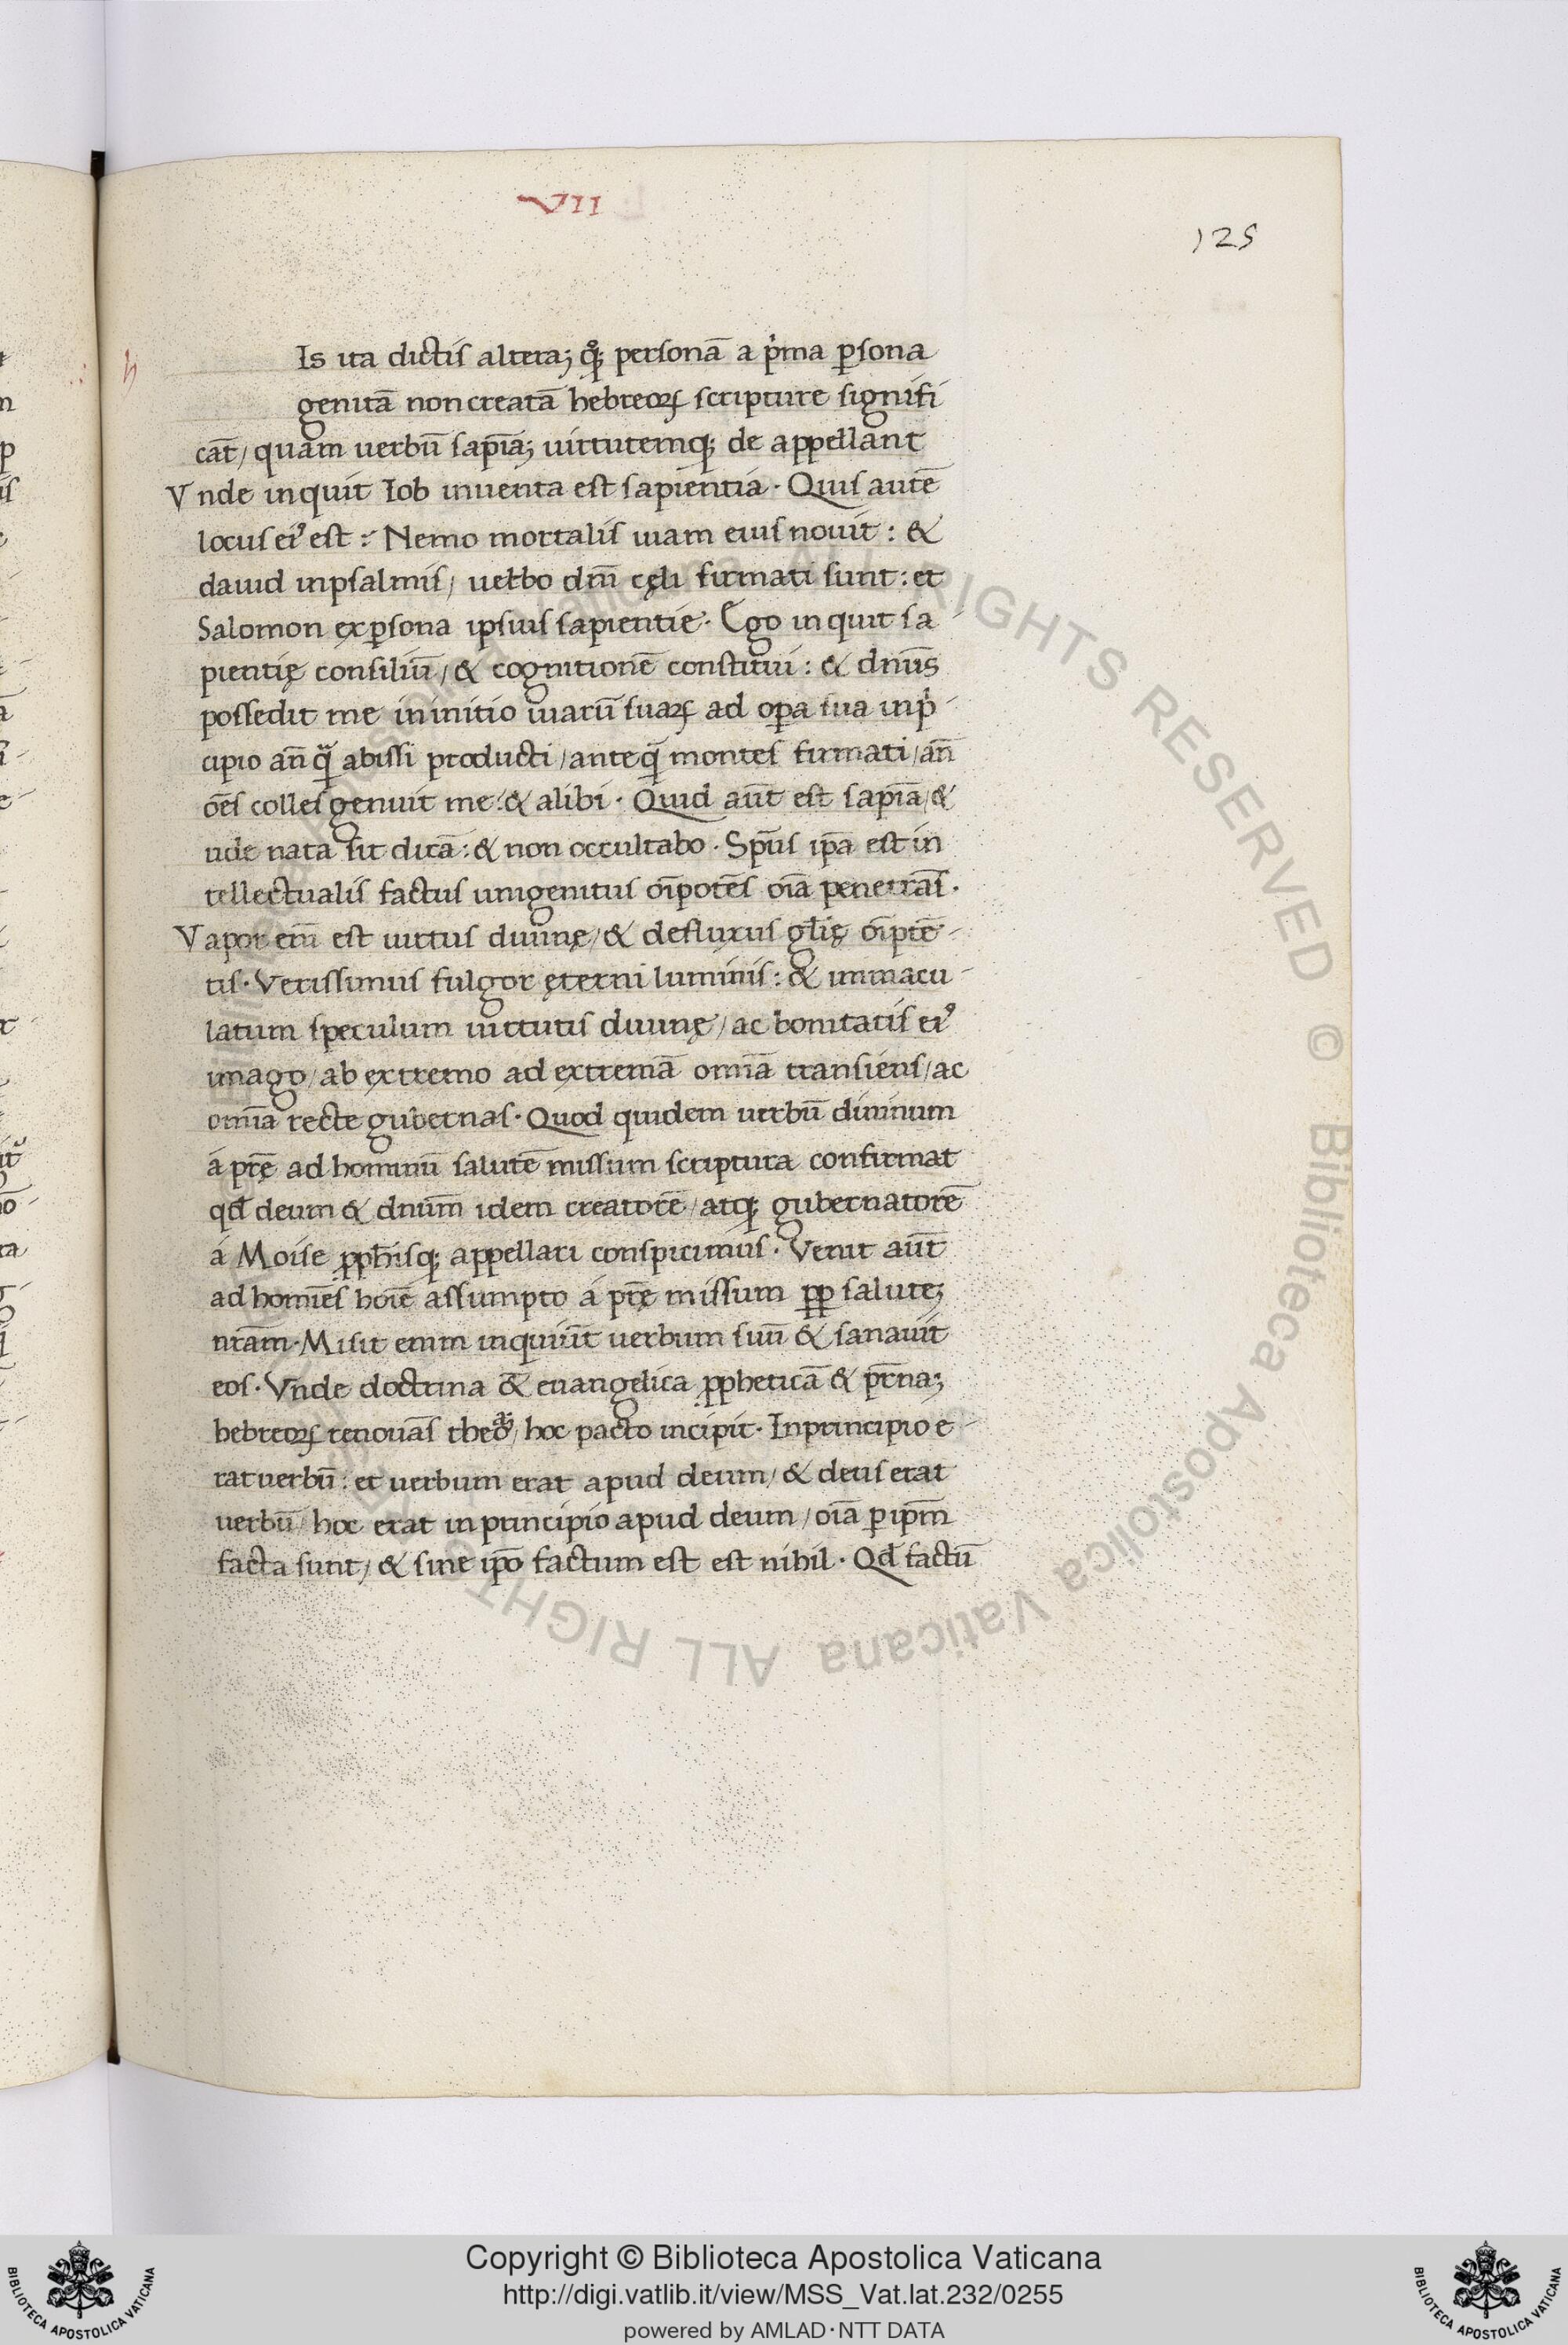 VII
125
h
Is ita dictis altera; qͦ; personā a pͥma ꝑsona
genitā non creatā hebreoꝝ scripture signifi
cāt/ quam uerbū sapīa; uirtutemq; de appellant
Vnde inquit Iob inuenta est sapientia · Quis autē
locus eiꝰ est :· Nemo mortalis uiam eius nouit : &
dauid in psalmis/ uerbo dn̄i cęli firmati sunt : et
Salomon ex ꝑsona ipsius sapientie · Ego inquit sa-
pientię consiliū/ & cognitionē constitui : & dnūs
possedit me in initio uiarū suaꝝ ad oꝑa sua in pͥ-
cipio an̄ qᷓ abissi producti/ anteqᷓ montes firmati/ an̄
oēs colles genuit me : & alibi · Quid aūt est sapīa/ &
ūde nata sit dicā : & non occultabo · Spūs ip̄a est in
tellectualis factus unigenitus oīpotēs oīa penetrās ·
Vapor em̄ est uirtus diuinę/ & defluxus glīę oīpotē-
tis · Verissimus fulgor ęterni luminis : & immacu-
latum speculum uirtutis diuinę/ ac bonitatis eiꝰ
imago/ ab extremo ad extremā omīa transiens/ ac
omīa recte gubernās · Quod quidem uerbū diuinum
á pr̄ę ad hominū salutē missum scriptura confirmat
qd̄ deum & dnūm idem creatorē/ atq; gubernatorē
á Moise ꝓphīsq; appellari conspicimus · Venit aūt
ad homīes hoīe assumpto á pr̄ę missum ꝓꝑ salute;
nrām · Misit enim inquiūt uerbum suū & sanauit
eos · Vnde doctrina &̄ euangelica ꝓpheticā & pr̄na;
hebreoꝝ renouās theo/ hoc pacto incipit · In principio e-
rat uerbū : et uerbum erat apud deum/ & deus erat
uerbū/ hoc erat in principio apud deum/ oīa ꝑ ip̄m
facta sunt/ & sine ip̄o factum est est nihil · Qd̄ factū
ALL RIGHTS RESERVED © Biblioteca Apostolica Vaticana ALL RIGHTS
Copyright © Biblioteca Apostolica Vaticana
http://digi.vatlib.it/view/MSS_Vat.lat.232/0255
powered by AMLAD·NTT DATA
BIBLIOTECA APOSTOLICA VATICANA
BIBLIOTECA APOSTOLICA VATICANA